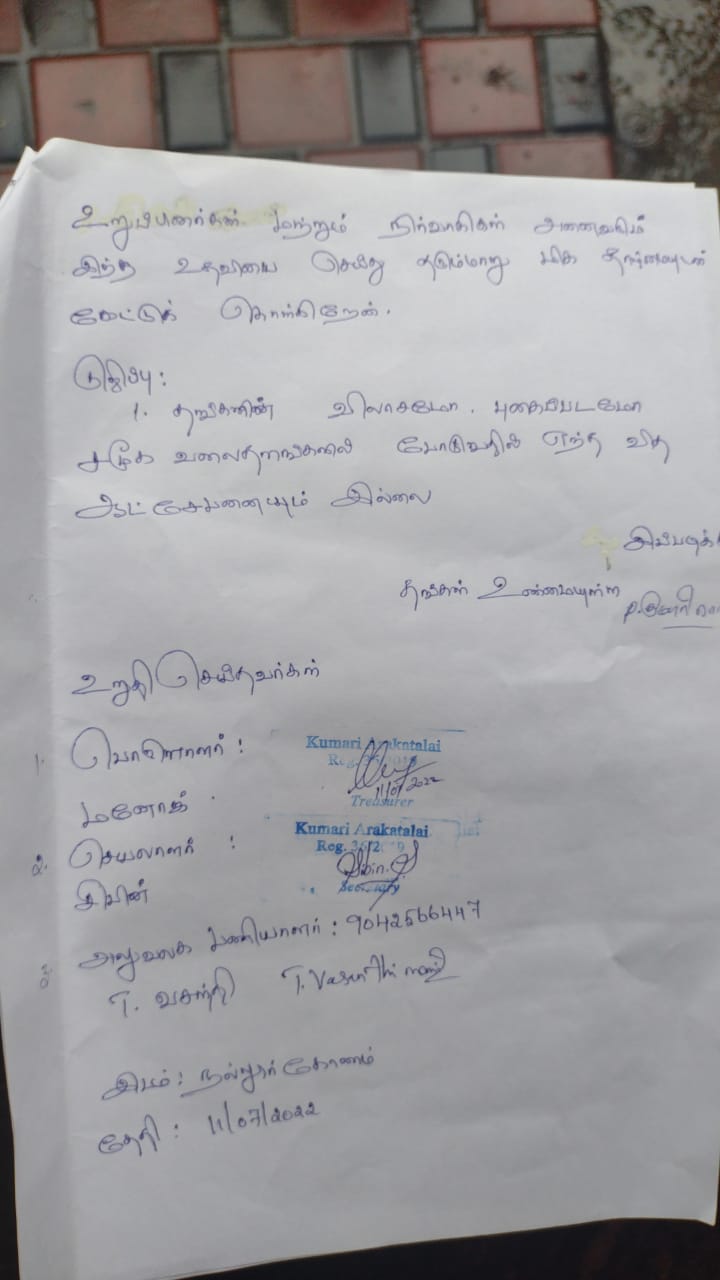 உறுப்பினர்கள் மற்றும் நிர்வாகிகள் அனைவரும்
இந்த உதவியை செய்து தரும்மாறு மிக தாழ்மையுடன்
கேட்டுக் கொள்கிறேன்.
குறிப்பு:
1. தங்களின் விலாசமோ, புகைப்படமோ
சமூக வலைதளங்களில் போடுவதில் எந்த வித
ஆட்சேபனையும் இல்லை
இப்படிக்கு
தங்கள் உண்மையுள்ள
உறுதி செய்தவர்கள்
1. பொருளாளர் :
Kumari Arakatalai
Reg. 36/2019
11/07/2022
Treasurer
மனோஜ்
Kumari Arakatalai
Reg. 36/2019
Secretary
2. செயலாளர் :
சிபின்
3. அலுவலக பணியாளர் : 9042566447
T. வசந்தி T. Vasanthi
இடம் : நல்லூர் கோணம்
தேதி : 11/07/2022